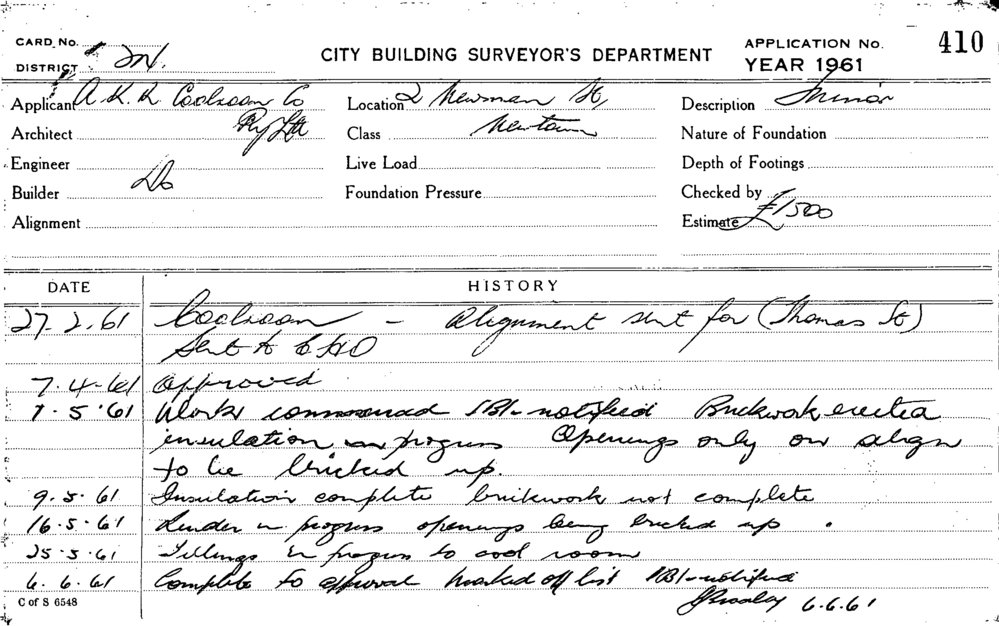 CARD No.
DISTRICT 2N.
CITY BUILDING SURVEYOR'S DEPARTMENT
APPLICATION No. 410
YEAR 1961
Applicant A.K.R. Coolroom Co
Pty Ltd
Location 2 Newman St,
Description Minor
Architect
Class Newtown
Nature of Foundation
Engineer
Live Load
Depth of Footings
Builder Do
Foundation Pressure
Checked by
Alignment
Estimate £1500
DATE HISTORY
27.2.61 Coolroom - Alignment sent for (Thomas St)
Sent to CHO
7.4.61 Approved
1.5.61 Works commenced notified Brickwork erected
insulation in progress Openings only on align
to be bricked up.
9.5.61 Insulation complete brickwork not complete
16.5.61 Render in progress openings being bricked up.
25.5.61 in progress to cool room
6.6.61 Complete to approval marked off list notified
6.6.61
C of S 6548